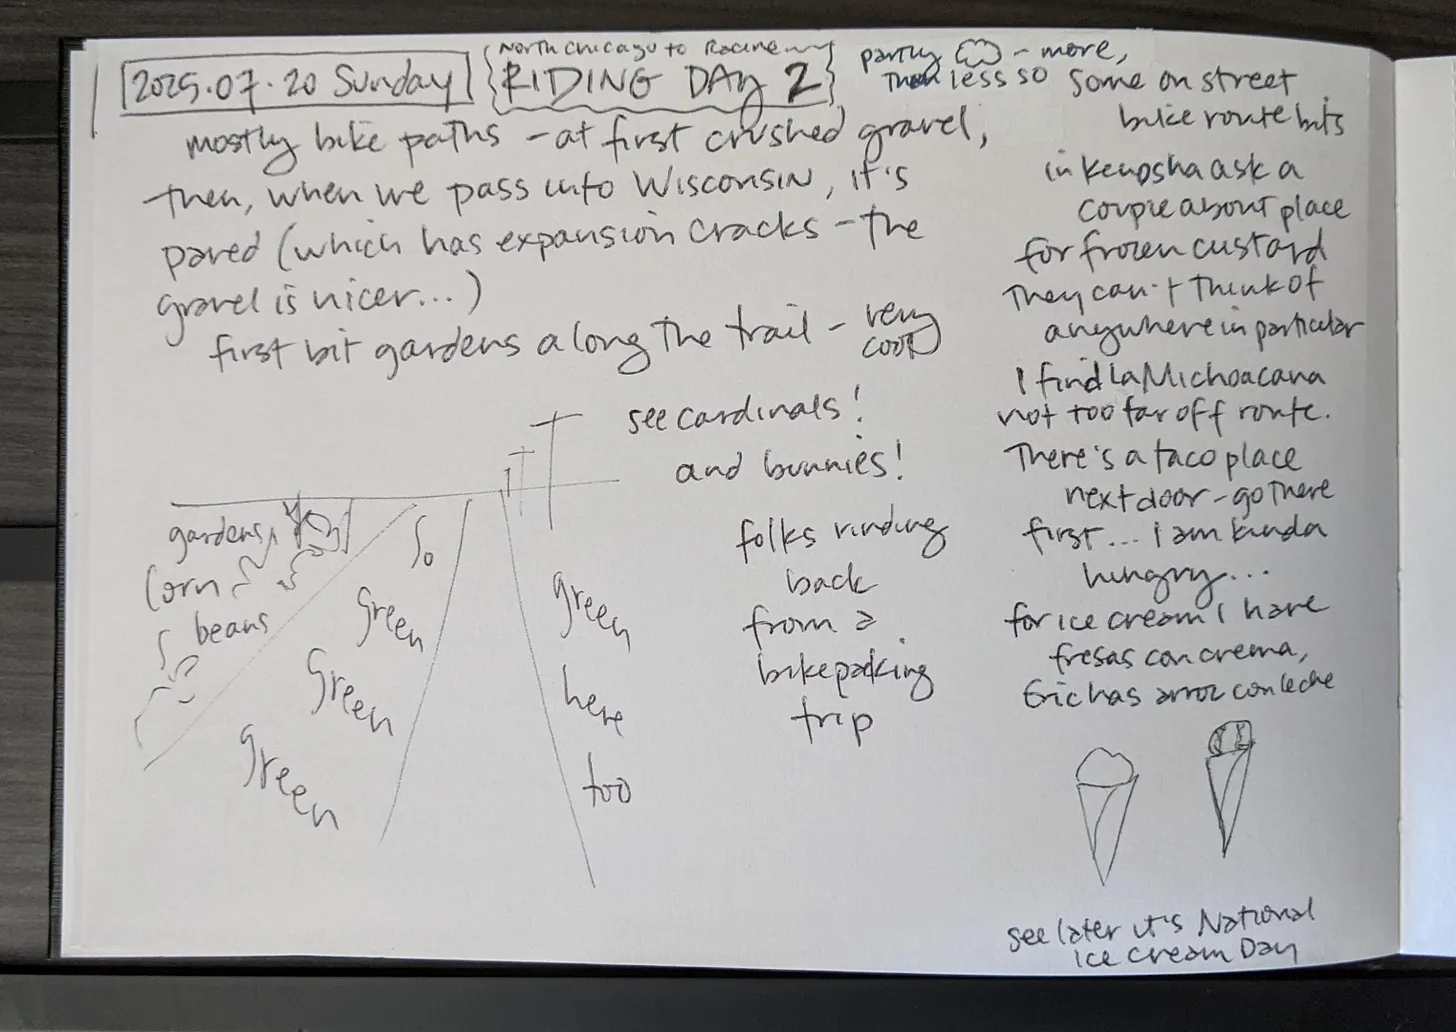 2025.07.20 Sunday
North Chicago to Racine
RIDING DAY 2
partly - more,
then less so
mostly bike paths - at first crushed gravel,
then, when we pass into Wisconsin, it's
paved (which has expansion cracks - the
gravel is nicer...)
first bit gardens along the trail - very
cool
see cardinals!
and bunnies!
folks riding
back
from a
bikepacking
trip
gardens,
corn
beans
So
green
green
green
green
here
too
Some on street
bike route bits
in Kenosha ask a
couple about place
for frozen custard
They can't think of
anywhere in particular
I find La Michoacana
not too far off route.
There's a taco place
next door - go there
first... i am kinda
hungry...
for ice cream I have
fresas con crema,
Eric has arroz con leche
see later it's National
Ice Cream Day